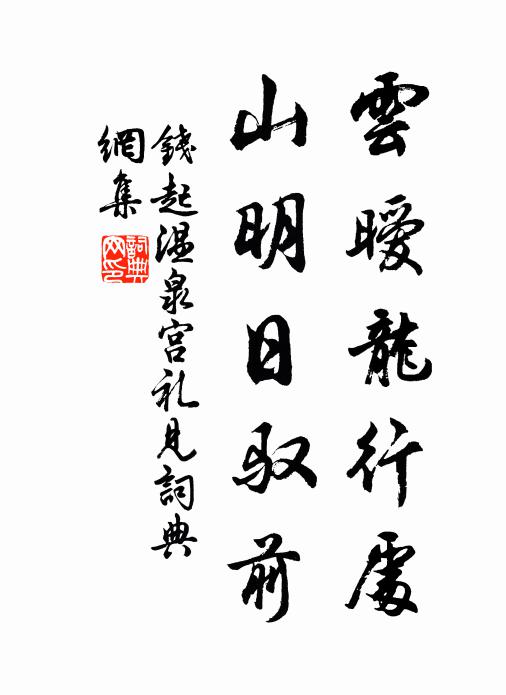 雲曖龍行處
山明日馭前
錢起溫泉宮礼見詞典
網集
詞典网印